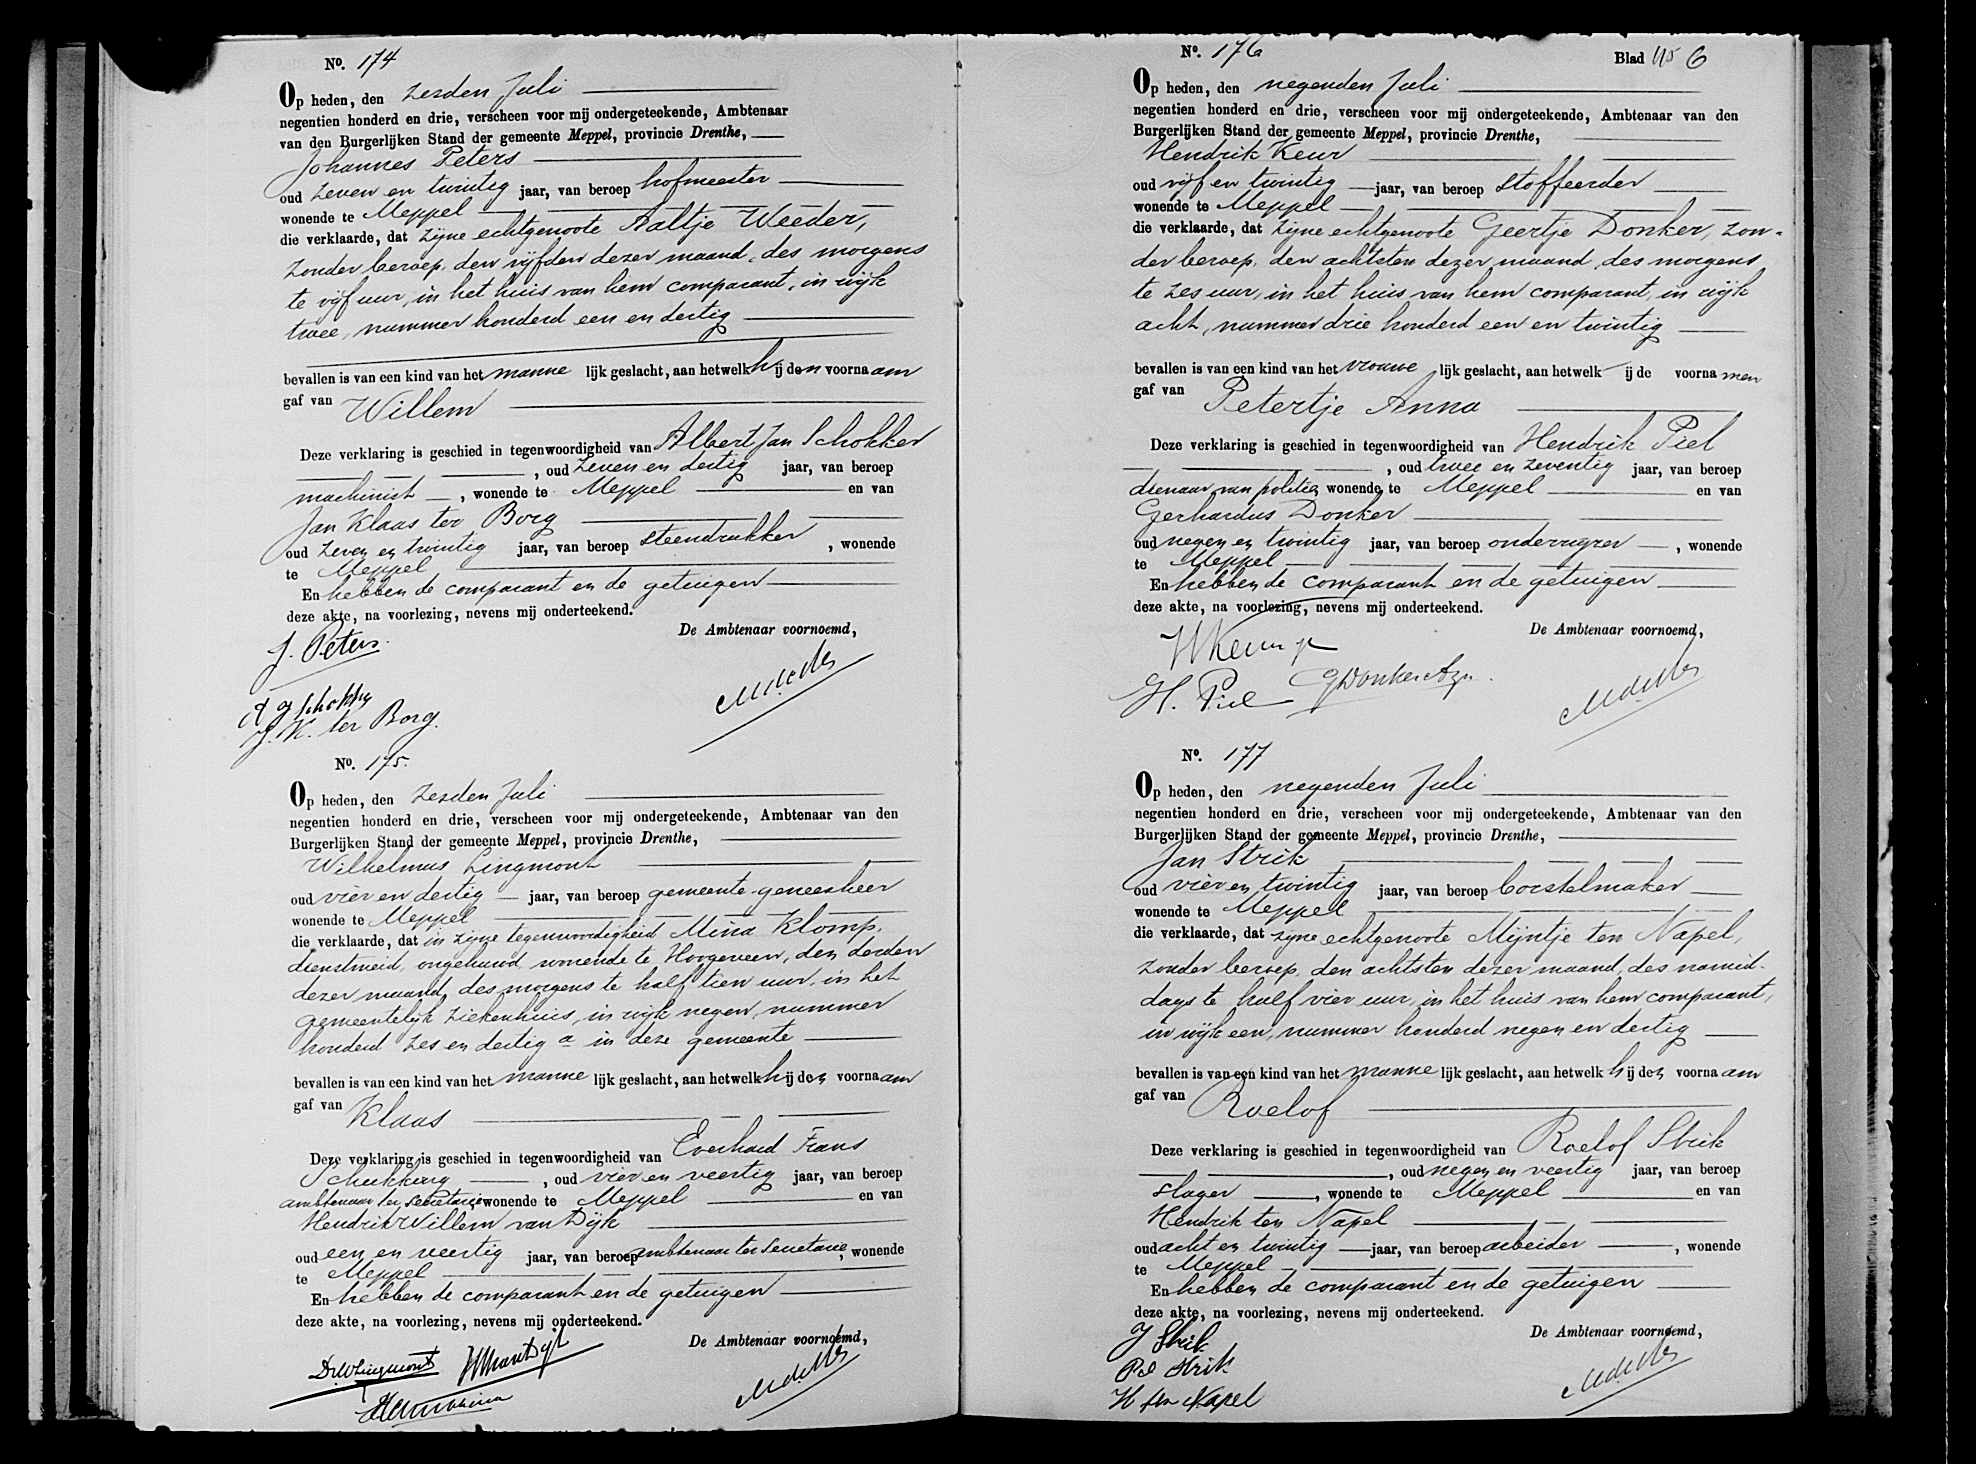 No. 174
Op heden, den zesden Juli
negentien honderd en drie, verscheen voor mij ondergeteekende, Ambtenaar
van den Burgerlijken Stand der gemeente Meppel, provincie Drenthe,
Johannes Peters
oud zeven en twintig jaar, van beroep hofmeester
wonende te Meppel
die verklaarde, dat zijne echtgenoote Aaltje Weeder,
zonder beroep, den vijfden dezer maand, des morgens
te vijf uur, in het huis van hem comparant, in wijk
twee, nummer honderd een en dertig
bevallen is van een kind van het manne lijk geslacht, aan hetwelk hij den voornaam
gaf van Willem
Deze verklaring is geschied in tegenwoordigheid van Albert Jan Schokker
, oud zeven en dertig jaar, van beroep
machinist , wonende te Meppel en van
Jan Klaas ter Borg
oud zeven en twintig jaar, van beroep steendrukker , wonende
te Meppel
En hebben de comparant en de getuigen
deze akte, na voorlezing, nevens mij onderteekend.
De Ambtenaar voornoemd,
J. Peters.
A J Schokker
J. K. ter Borg.
No. 175.
Op heden, den zesden Juli
negentien honderd en drie, verscheen voor mij ondergeteekende, Ambtenaar van den
Burgerlijken Stand der gemeente Meppel, provincie Drenthe,
Wilhelmus Lingmont
oud vier en dertig jaar, van beroep gemeente-geneesheer
wonende te Meppel
die verklaarde, dat in zijne tegenwoordigheid Mina Klomp,
dienstmeid, ongehuwd, wonende te Hoogeveen, den derden
dezer maand, des morgens te half tien uur, in het
gemeentelijk ziekenhuis, in wijk negen, nummer
honderd zes en dertig a in deze gemeente
bevallen is van een kind van het manne lijk geslacht, aan hetwelk hij den voornaam
gaf van Klaas
Deze verklaring is geschied in tegenwoordigheid van Everhard Frans
, oud vier en veertig jaar, van beroep
ambtenaar ter secretarie, wonende te Meppel en van
Hendrik Willem van Dijk
oud een en veertig jaar, van beroep ambtenaar ter secretarie, wonende
te Meppel
En hebben de comparant en de getuigen
deze akte, na voorlezing, nevens mij onderteekend.
De Ambtenaar voornoemd,
Dr. W Lingmont HW van Dijk
No. 176 Blad 45 6
Op heden, den negenden Juli
negentien honderd en drie, verscheen voor mij ondergeteekende, Ambtenaar van den
Burgerlijken Stand der gemeente Meppel, provincie Drenthe,
Hendrik Keur
oud vijf en twintig jaar, van beroep stoffeerder
wonende te Meppel
die verklaarde, dat zijne echtgenoote Geertje Donker, zon-
der beroep, den achtsten dezer maand, des morgens
te zes uur, in het huis van hem comparant, in wijk
acht, nummer drie honderd een en twintig
bevallen is van een kind van het vrouwe lijk geslacht, aan hetwelk ij de voornamen
gaf van Petertje Anna
Deze verklaring is geschied in tegenwoordigheid van Hendrik Piel
, oud twee en zeventig jaar, van beroep
dienaar van politie, wonende te Meppel en van
Gerhardus Donker
oud negen en twintig jaar, van beroep onderwijzer , wonende
te Meppel
En hebben de comparant en de getuigen
deze akte, na voorlezing, nevens mij onderteekend.
De Ambtenaar voornoemd,
H Keur
H. Piel G Donker Azn.
No. 177
Op heden, den negenden Juli
negentien honderd en drie, verscheen voor mij ondergeteekende, Ambtenaar van den
Burgerlijken Stand der gemeente Meppel, provincie Drenthe,
Jan Strik
oud vier en twintig jaar, van beroep borstelmaker
wonende te Meppel
die verklaarde, dat zijne echtgenoote Mijntje ten Napel,
zonder beroep, den achtsten dezer maand, des namid-
dags te half vier uur, in het huis van hem comparant,
in wijk een, nummer honderd negen en dertig
bevallen is van een kind van het manne lijk geslacht, aan hetwelk hij den voornaam
gaf van Roelof
Deze verklaring is geschied in tegenwoordigheid van Roelof Strik
, oud negen en veertig jaar, van beroep
slager , wonende te Meppel en van
Hendrik ten Napel
oud acht en twintig jaar, van beroep arbeider , wonende
te Meppel
En hebben de comparant en de getuigen
deze akte, na voorlezing, nevens mij onderteekend.
De Ambtenaar voornoemd,
J Strik
Rl Strik
H ten Napel